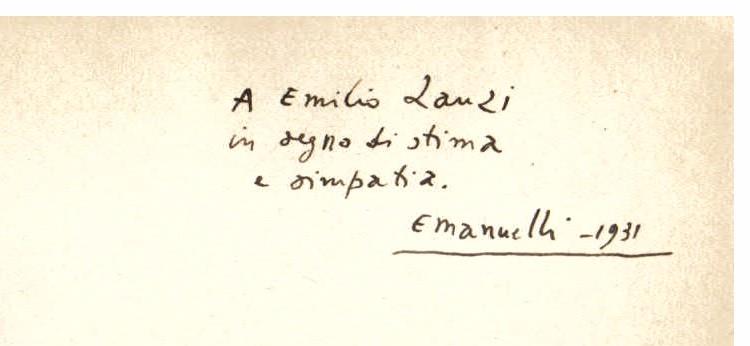 A Emilio Lanzi
in segno di stima
e simpatia.
Emanuelli - 1931